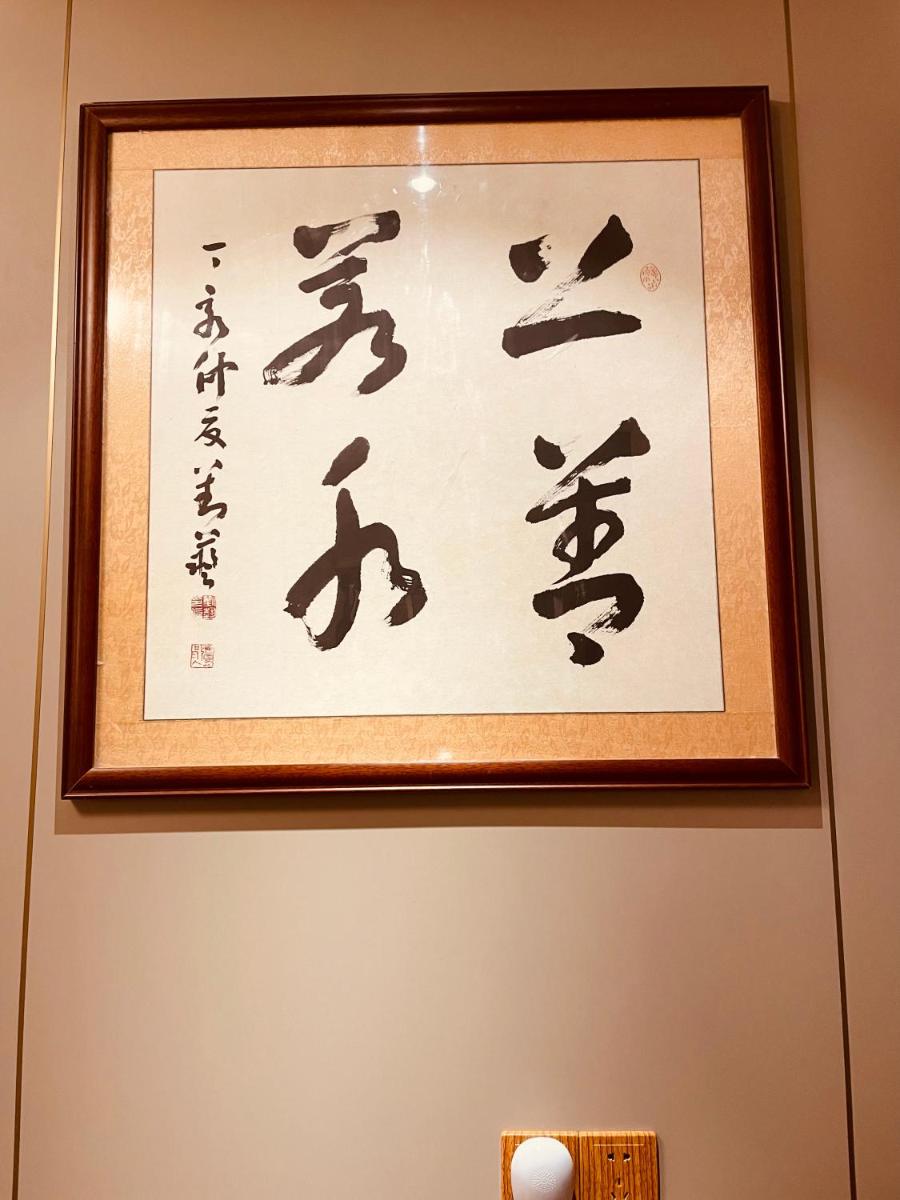 上善
若水
丁亥仲夏